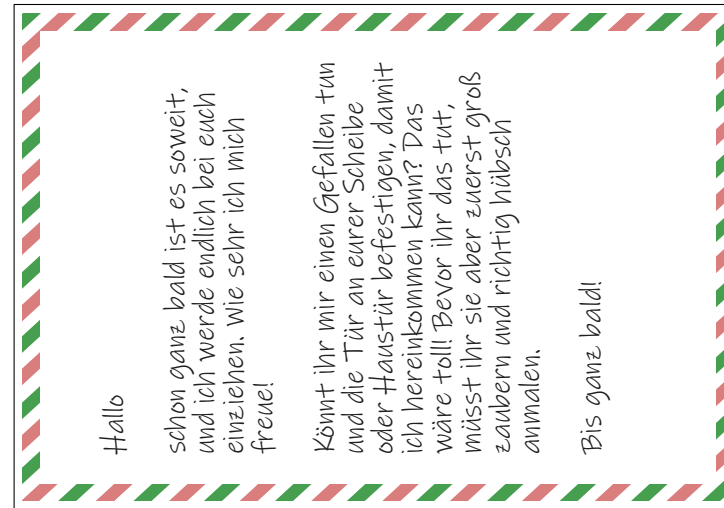 Hallo
schon ganz bald ist es soweit,
und ich werde endlich bei euch
einziehen. Wie sehr ich mich
freue!
Könnt ihr mir einen Gefallen tun
und die Tür an eurer Scheibe
oder Haustür befestigen, damit
ich hereinkommen kann? Das
wäre toll! Bevor ihr das tut,
müsst ihr sie aber zuerst groß
zaubern und richtig hübsch
anmalen.
Bis ganz bald!